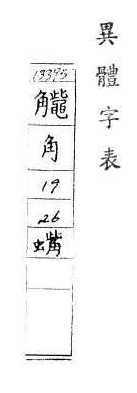 異體字表
13395
角
19
26
蟕